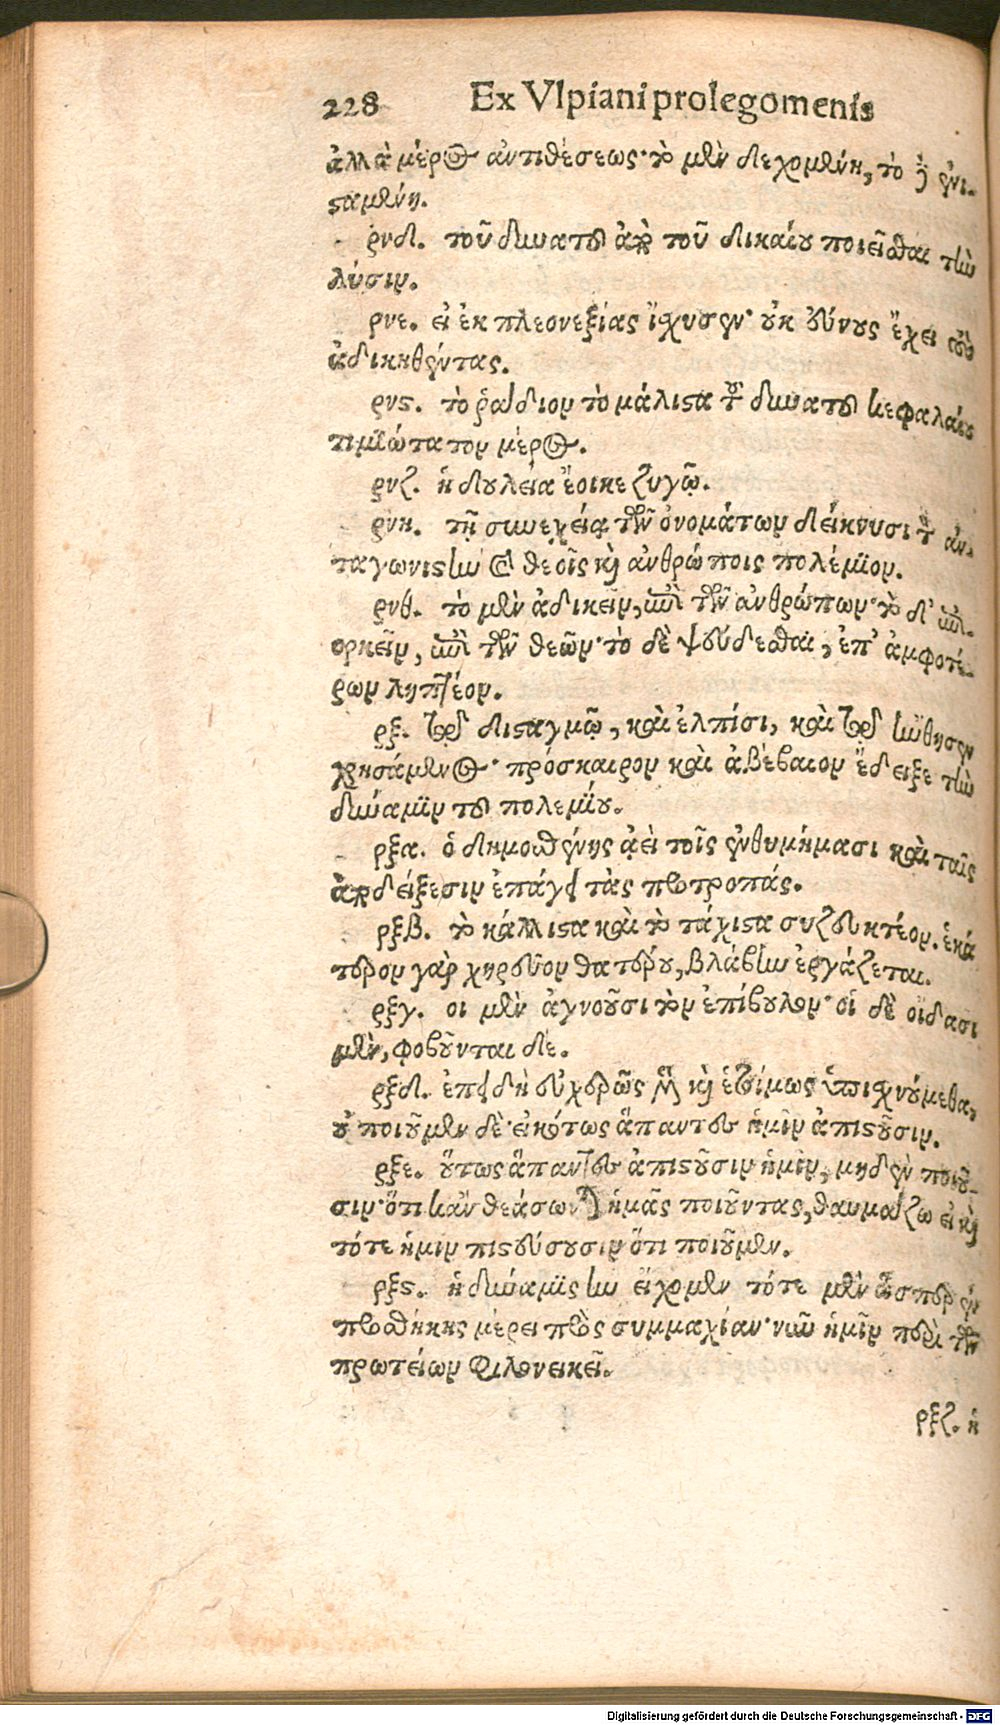 228 Ex Vlpiani prolegomenis
ἀλλὰ μέρος ἀντιθέσεως· τὸ μὲν δεχομένη, τὸ δὲ ἐνι-
σαμένη.
ρνδ. τοῦ δυνατοῦ ἀπὸ τοῦ δικαίου ποιεῖσθαι τὴν
λύσιν.
ρνε. εἰ ἐκ πλεονεξίας ἴσχυσεν· οὐκ εὔνους ἔχει τοὺς
ἀδικηθέντας.
ρνϛ. τὸ ῥᾴδιον τὸ μάλιστα τοῦ δυνατοῦ κεφαλαίου
τιμιώτατον μέρος.
ρνζ. ἡ δουλεία ἔοικε ζυγῷ.
ρνη. τῇ συνεχείᾳ τῶν ὀνομάτων δείκνυσι τὸν ἀν-
ταγωνιστὴν καὶ θεοῖς καὶ ἀνθρώποις πολέμιον.
ρνθ. τὸ μὲν ἀδικεῖν, ἐπὶ τῶν ἀνθρώπων· τὸ δ' ἐπι-
ορκεῖν, ἐπὶ τῶν θεῶν· τὸ δὲ ψεύδεσθαι, ἐπ' ἀμφοτέ-
ρων ληπτέον.
ρξ. τῷ δισταγμῷ, καὶ ἐλπίσι, καὶ τῷ ηὔθησεν
χρησάμενος· πρόσκαιρον καὶ ἀβέβαιον ἔδειξε τὴν
δύναμιν τοῦ πολεμίου.
ρξα. ὁ δημοσθένης ἀεὶ τοῖς ἐνθυμήμασι καὶ ταῖς
ἀποδείξεσιν ἐπάγει τὰς προτροπάς.
ρξβ. τὸ κάλλιστα καὶ τὸ τάχιστα συζευκτέον. ἑκά
τερον γὰρ χηρεῦον θατέρου, βλάβην ἐργάζεται.
ρξγ. οι μὲν ἀγνοοῦσι τὸν ἐπίβουλον· οἱ δὲ οἴδασι
μὲν, φοβοῦνται δέ.
ρξδ. ἐπειδὴ εὐχερῶς μὲν καὶ ἑτοίμως ὑπισχνούμεθα,
οὐ ποιοῦμεν δὲ· εἰκότως ἅπαντες ἡμῖν ἀπιστοῦσιν.
ρξε. οὕτως ἅπαντες ἀπιστοῦσιν ἡμῖν, μηδὲν ποιοῦ-
σιν· ὅτι κἂν θεάσωνται ἡμᾶς ποιοῦντας, θαυμάζω εἰ καὶ
τότε ἡμῖν πιστεύσουσιν ὅτι ποιοῦμεν.
ρξϛ. ἡ δύναμις ἣν εἴχομεν τότε μὲν ὥσπερ ἐν
προσθήκης μέρει πρὸς συμμαχίαν· νῦν ἡμῖν περὶ τῶν
πρωτείων φιλονεικεῖ.
ρξζ. ἡ
Digitalisierung gefördert durch die Deutsche Forschungsgemeinschaft - DFG